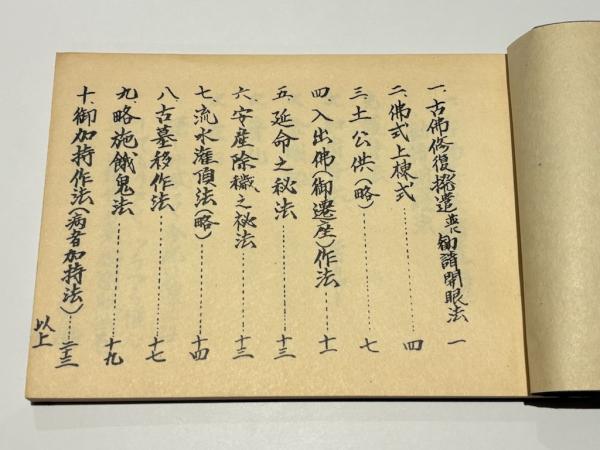 一、古佛修復撥遣並に勧請開眼法 一
二、佛式上棟式 四
三、土公供(略) 七
四、入出佛(御遷座)作法 十一
五、延命之秘法 十三
六、安産除穢之秘法 十三
七、流水灌頂法(略) 十四
八、古墓移作法 十七
九、略施餓鬼法 十九
十、御加持作法(病者加持法) 二十三
以上